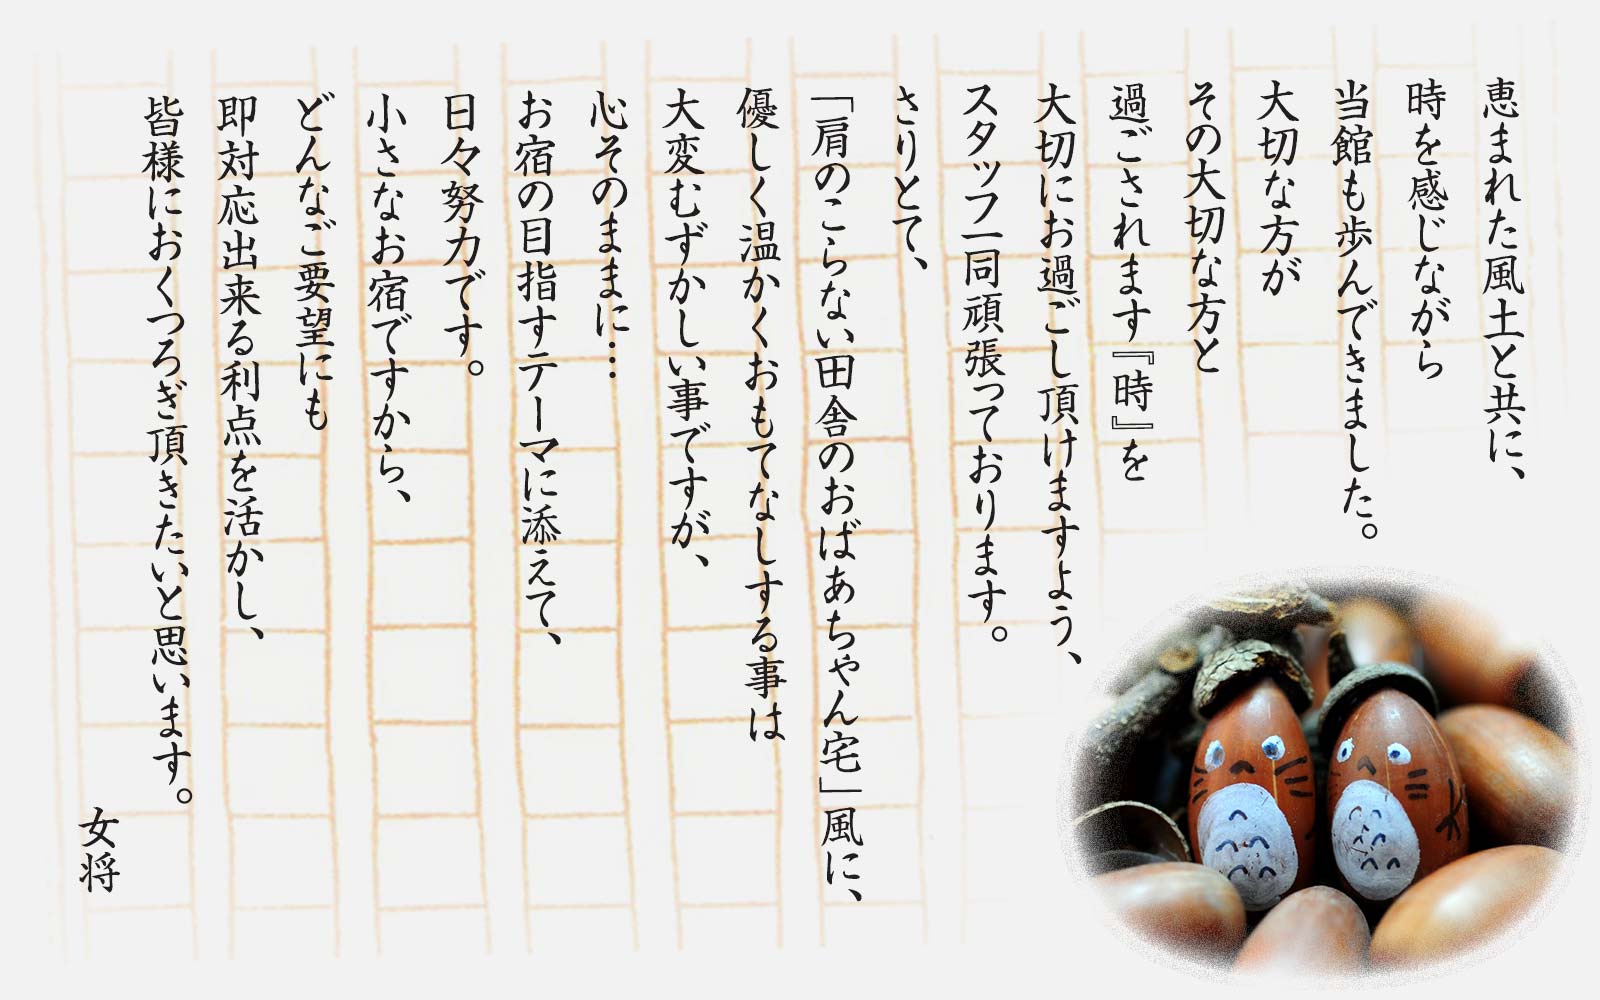 恵まれた風土と共に、
時を感じながら
当館も歩んできました。
大切な方が
その大切な方と
過ごされます『時』を
大切にお過ごし頂けますよう、
スタッフ一同頑張っております。
さりとて、
「肩のこらない田舎のおばあちゃん宅」風に、
優しく温かくおもてなしする事は
大変むずかしい事ですが、
心そのままに…
お宿の目指すテーマに添えて、
日々努力です。
小さなお宿ですから、
どんなご要望にも
即対応出来る利点を活かし、
皆様におくつろぎ頂きたいと思います。
女将